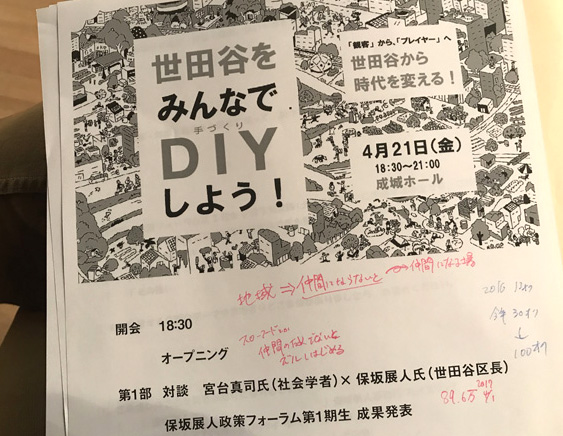 世田谷を
みんなで
手づくり
DIY
しよう！
「観客」から、「プレイヤー」へ
世田谷から
時代を変える！
4月21日(金)
18:30〜21:00
成城ホール
地域 ⇒ 仲間にならないと 仲間になる場
2016
今年 30オク
↓
100オク
開会 18:30
オープニング
仲間
第1部 対談 宮台真司氏(社会学者)×保坂展人氏(世田谷区長)
89.6万 2017 4/1
保坂展人政策フォーラム第1期生 成果発表